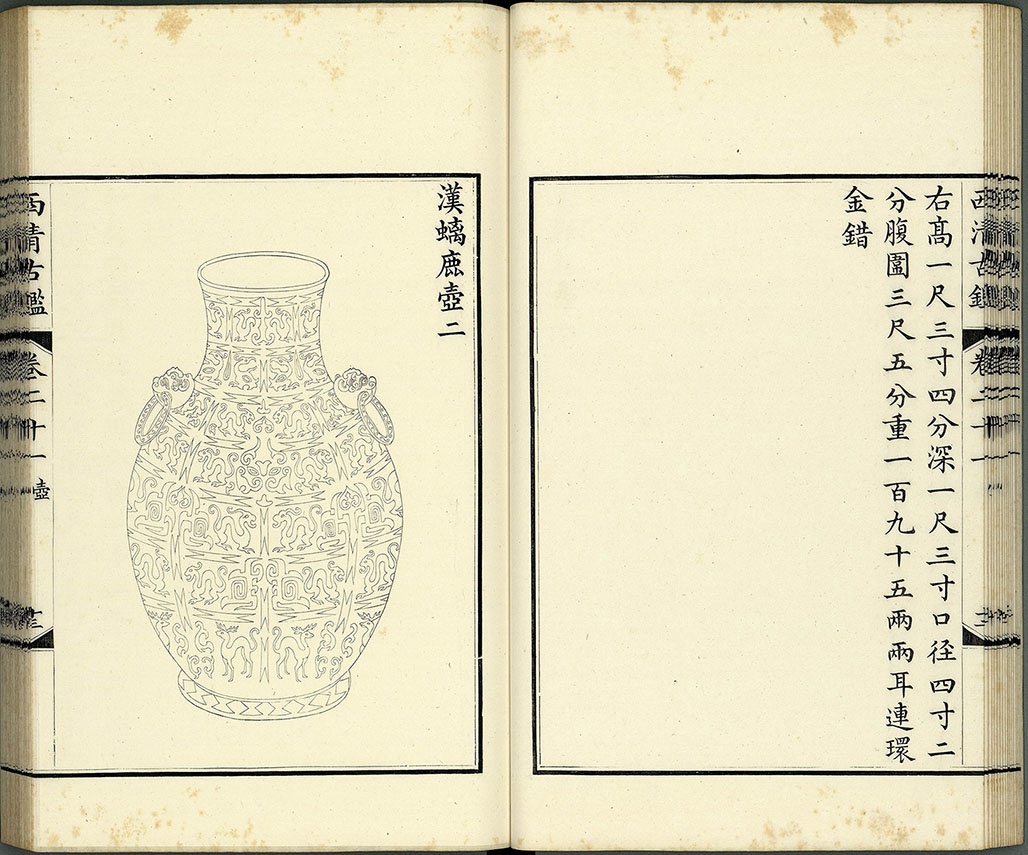 西清古鑑 卷二十一
右高一尺三寸四分深一尺三寸口径四寸二
分腹圍三尺五分重一百九十五兩兩耳連環
金錯
漢螭鹿壺二
西清古鑑 卷二十一 壺